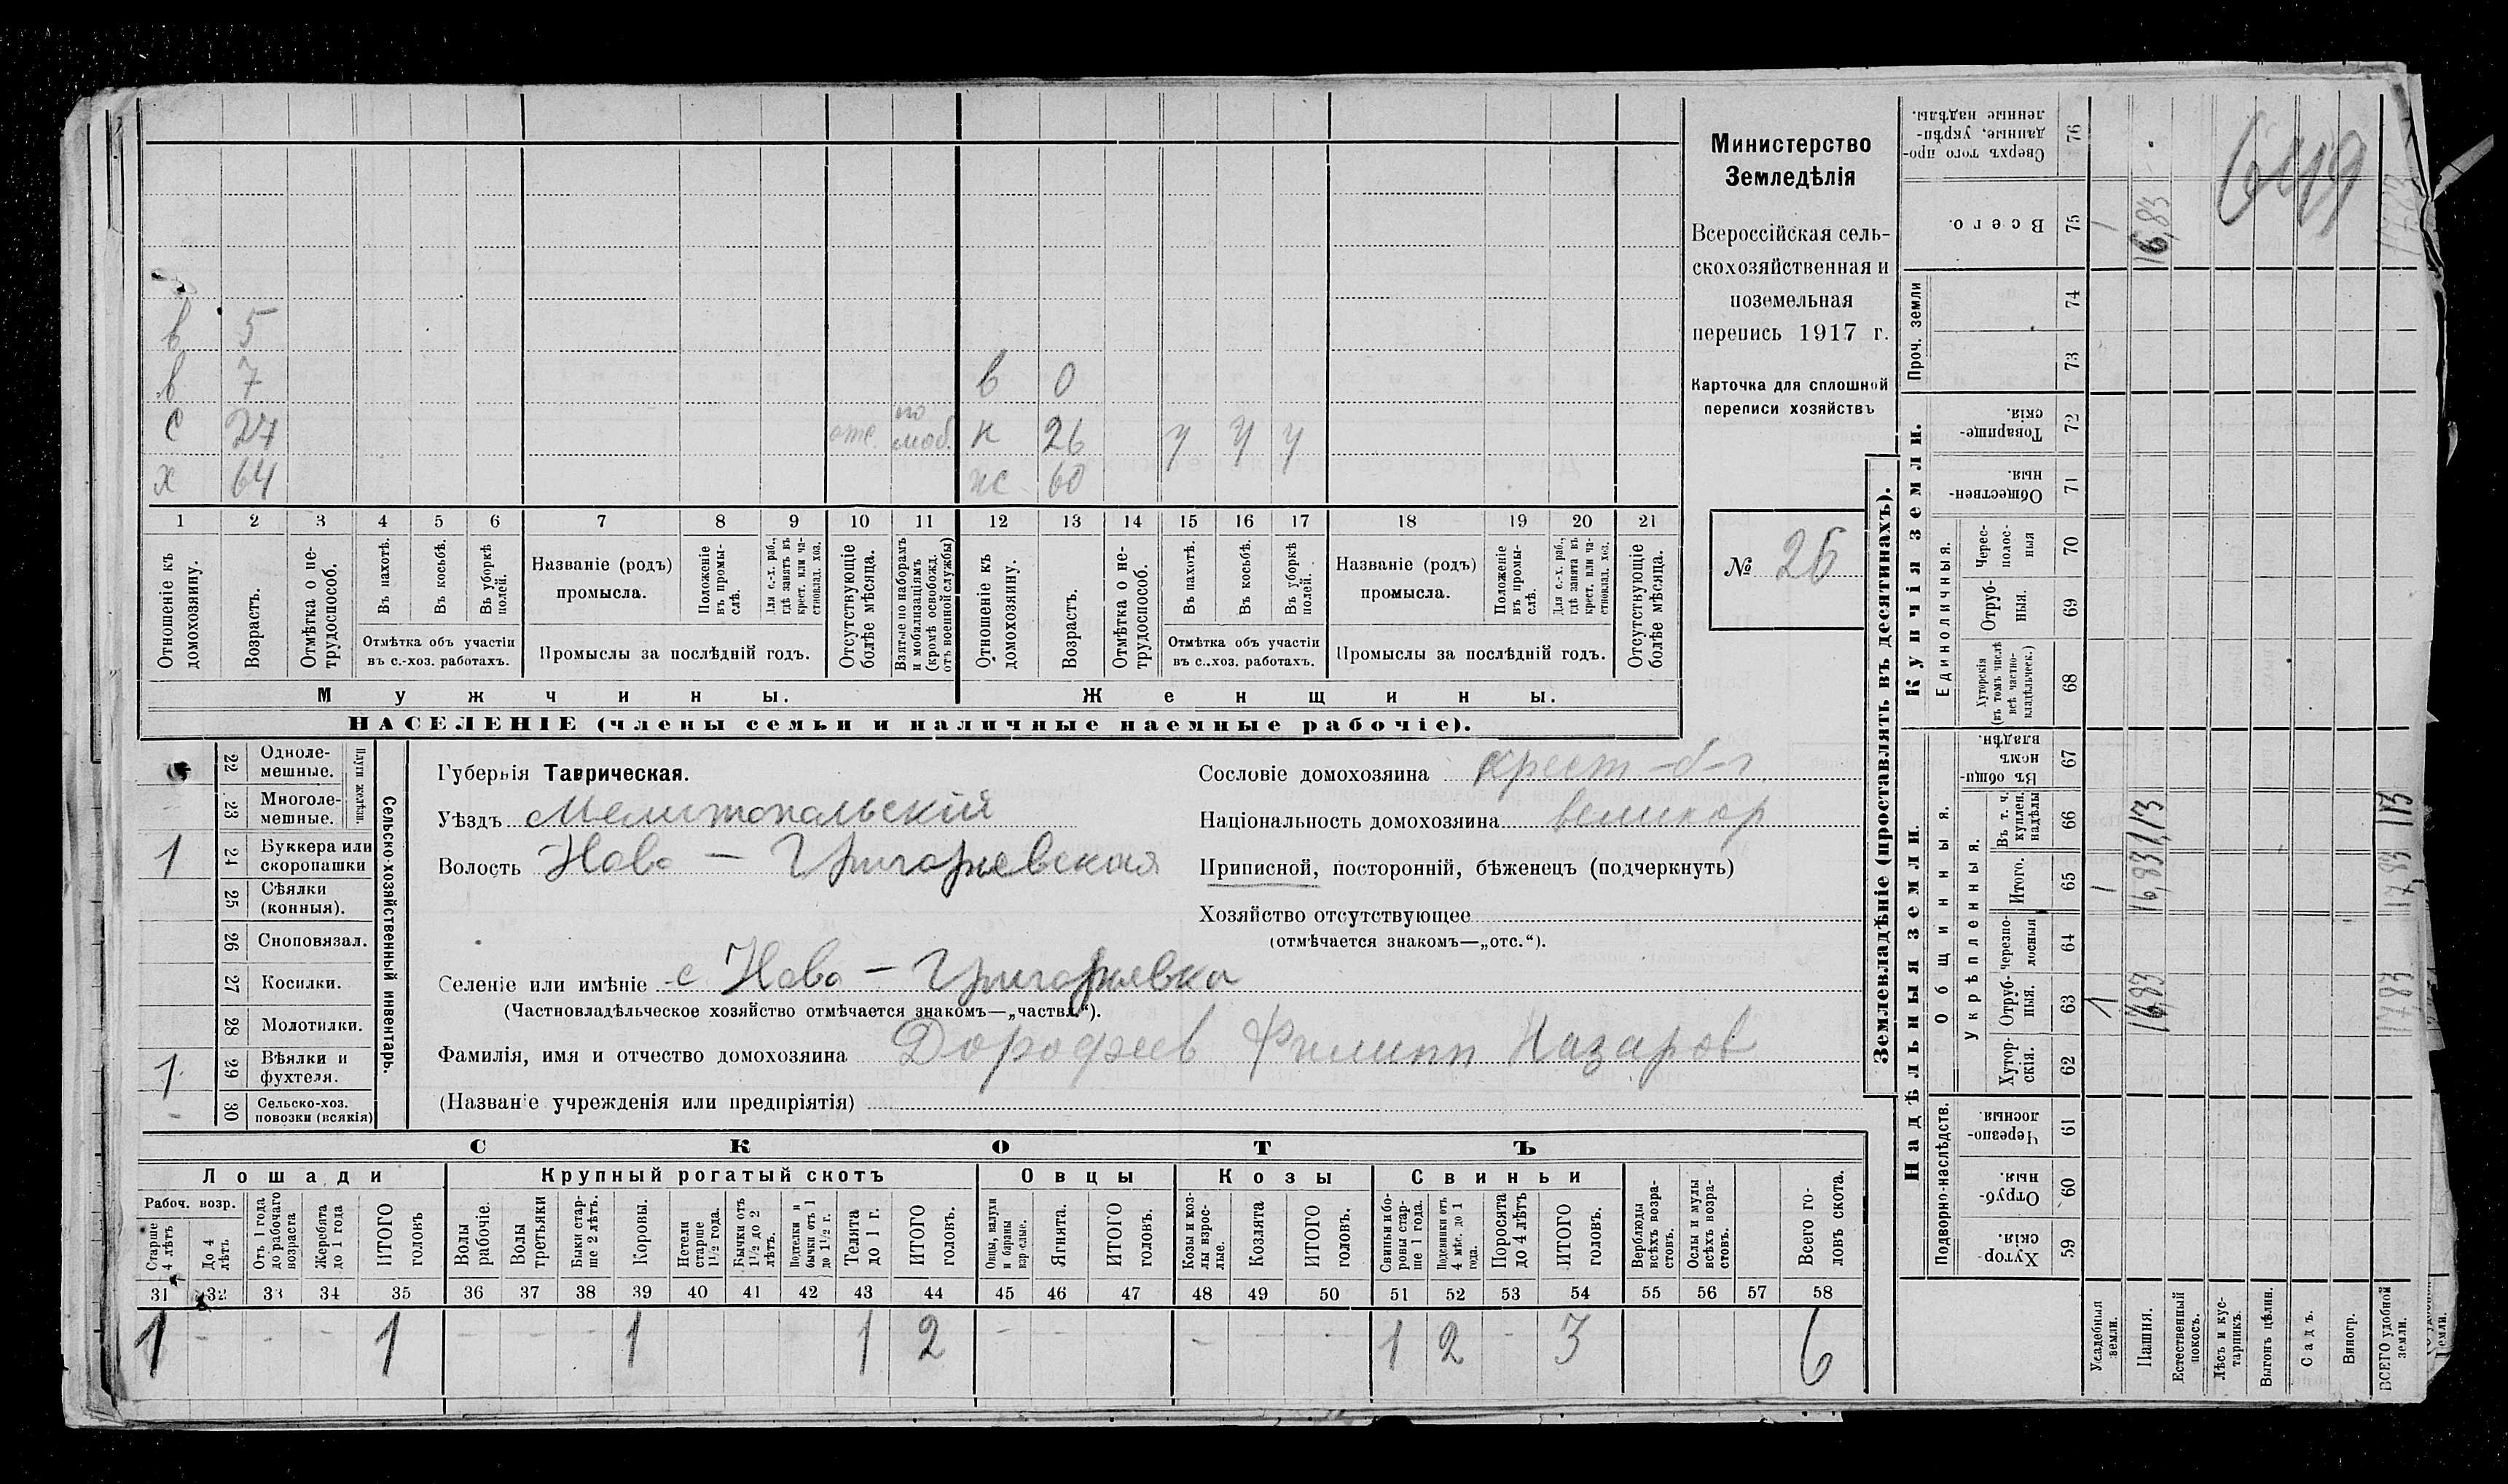 Министерство
Земледѣлія
Всероссійская сель-
скохозяйственная и
поземельная
перепись 1917 г.
Карточка для сплошной
переписи хозяйствъ
№ 26
в 5
в 7 в 0
с 27 отс. по моб. н 26 у у у
х 64 ж 60
1 2 3 4 5 6 7 8 9 10 11 12 13 14 15 16 17 18 19 20 21
Отношеніе къ домохозяину.
Возрастъ.
Отмѣтка о не-трудоспособ.
Въ пахотѣ.
Въ косьбѣ.
Въ уборкѣ полей.
Отмѣтка объ участіи
въ с.-хоз. работахъ.
Названіе (родъ)
промысла.
Положеніе въ промы-слѣ.
Для с.-х. раб., гдѣ занятъ въ крест. или ча-стновлад. хоз.
Промыслы за послѣдній годъ.
Отсутствующіе болѣе мѣсяца.
Взятые по наборамъ и мобилизаціямъ (кромѣ освобожд. отъ военной службы)
Отношеніе къ домохозяину.
Возрастъ.
Отмѣтка о не-трудоспособ.
Въ пахотѣ.
Въ косьбѣ.
Въ уборкѣ полей.
Отмѣтка объ участіи
въ с.-хоз. работахъ.
Названіе (родъ)
промысла.
Положеніе въ промы-слѣ.
Для с.-х. раб., гдѣ занята въ крест. или ча-стновлад. хоз.
Промыслы за послѣдній годъ.
Отсутствующіе болѣе мѣсяца.
Мужчины. Женщины.
НАСЕЛЕНІЕ (члены семьи и наличные наемные рабочіе).
Сельско-хозяйственный инвентарь.
Плуги желѣзн.
22 Одноле-мешные.
23 Многоле-мешные.
1 24 Буккера или скоропашки
25 Сѣялки (конныя).
26 Сноповязал.
27 Косилки.
28 Молотилки.
1 29 Вѣялки и фухтеля.
- 30 Сельско-хоз. повозки (всякія)
Губернія Таврическая.
Уѣздъ Мелитопольскій
Волость Ново - Григорьевская
Селеніе или имѣніе с Ново - Григорьевка
(Частновладѣльческое хозяйство отмѣчается знакомъ—„частвл.“).
Фамилія, имя и отчество домохозяина Дорофеев Филипп Назаров
(Названіе учрежденія или предпріятія)
Сословіе домохозяина крест-
Національность домохозяина великор
Приписной, посторонній, бѣженецъ (подчеркнуть)
Хозяйство отсутствующее
(отмѣчается знакомъ—„отс.“).
СКОТЪ
Лошади Крупный рогатый скотъ Овцы Козы Свиньи
Рабоч. возр.
Старше 4 лѣтъ
До 4 лѣтъ
Отъ 1 года до рабочаго возраста
Жеребята до 1 года
ИТОГО головъ
Волы рабочіе.
Волы третьяки
Быки стар-ше 2 лѣтъ.
Коровы.
Нетели старше 1½ года.
Бычки отъ 1½ до 2 лѣтъ.
Подтелки и бычки отъ 1 до 1½ г.
Телята до 1 г.
ИТОГО головъ.
Овцы, валухи и бараны взрослые.
Ягнята.
ИТОГО головъ.
Козы и коз-лы взрос-лые.
Козлята
ИТОГО головъ.
Свиньи и бо-ровы стар-ше 1 года.
Подсвинки отъ 4 мѣс. до 1 года.
Поросята до 4 лѣтъ
ИТОГО головъ.
Верблюды всѣхъ возра-стовъ.
Ослы и мулы всѣхъ возра-стовъ.
Всего го-ловъ скота.
31 32 33 34 35 36 37 38 39 40 41 42 43 44 45 46 47 48 49 50 51 52 53 54 55 56 57 58
1 - - - 1 - - - 1 1 2 - - - - - - 1 2 - 3 6
Землевладѣніе (проставлять въ десятинахъ).
Купчія земли.
Надѣльныя земли.
Сверхъ того про-данные, укрѣп-ленные надѣлы. 76
Всего. 75
Проч. земли 74 73
Товарище-скія. 72
Обществен-ныя. 71
Единоличныя.
Черес-полос-ныя 70
Отруб-ныя. 69
Хуторскія (въ томъ числѣ всѣ частно-владѣльческ.) 68
Общинныя.
Въ общи-номъ владѣн. 67
Укрѣпленныя.
Въ т. ч. куплен. надѣлы 66
Итого. 65
Черезпо-лосныя 64
Отруб-ныя. 63
Хутор-скія. 62
Подворно-наслѣдств.
Черезпо-лосныя. 61
Отруб-ныя. 60
Хутор-скія. 59
Усадебныя земли.
Пашня.
Естественный покосъ.
Лѣсъ и кус-тарникъ.
Выгонъ цѣлин.
Садъ.
Виногр.
ВСЕГО удобной земли.
1 1
16,83 16,83 1,13 16,83
17,83 17,83 1,13